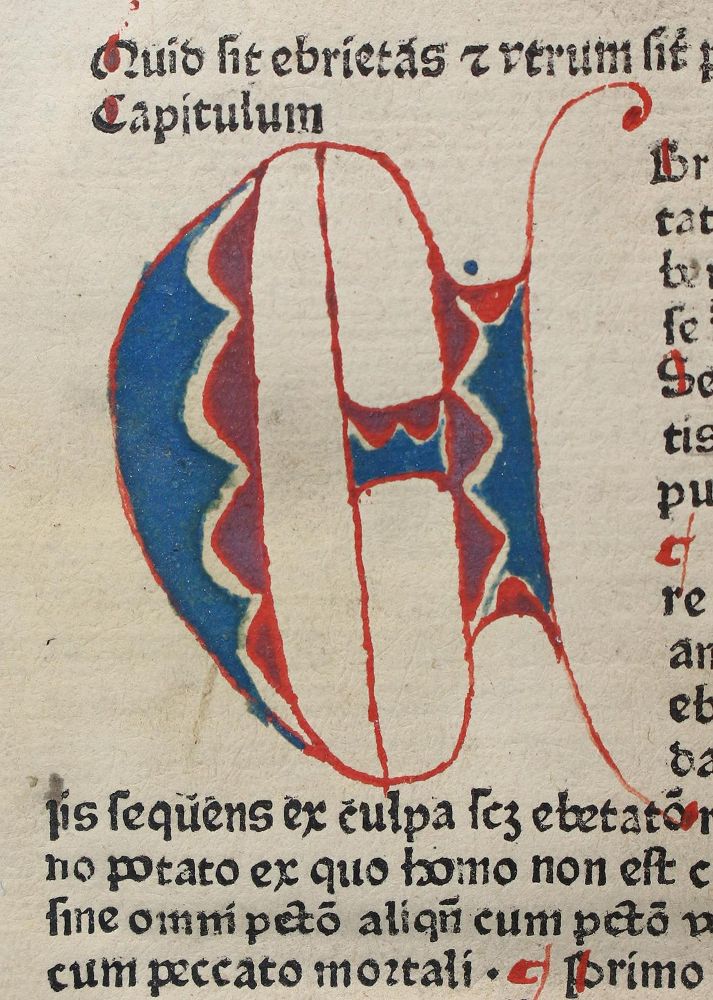 Quid sit ebrietas ⁊ vtrum sit̄ p
Capitulum
E
Br
tat
be
se
Se
tis
pu
¶
re
an
eb
da
sis sequēns ex culpa scꝫ ebetatō
no potato ex quo homo non est c
sine omni pctō aliqñ cum pctō
cum peccato mortali . ¶ Primo